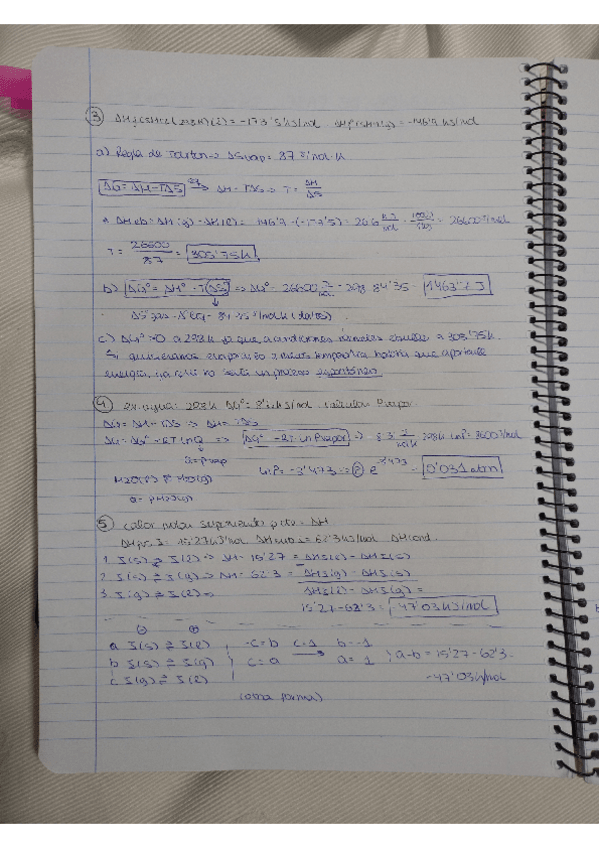 ③ ΔHf(C2H5Cl)(298K)(l) = -173'5 kJ/mol ΔHf(g) = -146'9 kJ/mol
a) Regla de Trouton => ΔSvap = 87 J/mol·K
ΔG = ΔH - TΔS → ΔH = TΔS => T = ΔH/ΔS
ΔHeb = ΔH(g) - ΔH(l) = -146'9 - (-173'5) = 26'6 kJ/mol · 1000J/1kJ = 26600 J/mol
T = 26600/87 = 305'75K
b) ΔG° = ΔH° - TΔS => ΔG° = 26600 J/mol - 298·84'35 = 1463'7 J
(datos)
c) ΔG° > 0 a 298K ya que a condiciones normales ebulle a 305'75K
Si quisiéramos evaporarlo a menos temperatura habría que aportarle
energía, ya que no sería un proceso espontáneo
④ 298K ΔG° = 8'6 kJ/mol calcular Pvapor
ΔG = ΔH - TΔS => ΔH = TΔS
ΔG = ΔG° + RT lnQ => ΔG° = -RT ln Pvapor => 298K · lnP = 8600 J/mol
Q = Pvap
lnP = -3'473 => P = e^-3'473 = 0'031 atm
H2O(l) ⇌ H2O(g)
Q = PH2O(g)
⑤ calor molar suponiendo p cte = ΔH
ΔHfus I = 15'27 kJ/mol ΔHsub = 62'3 kJ/mol ΔHcond
1. I(s) ⇌ I(l) => ΔH = 15'27 = ΔHI(l) - ΔHI(s)
2. I(s) ⇌ I(g) => ΔH = 62'3 = ΔHI(g) - ΔHI(s)
3. I(g) ⇌ I(l) => ΔHI(l) - ΔHI(g) =
15'27 - 62'3 = -47'03 kJ/mol
a I(s) ⇌ I(l) -c = b c=1 b = -1
b I(s) ⇌ I(g) c = a → a = 1 a-b = 15'27 - 62'3 =
c I(g) ⇌ I(l) -47'03 kJ/mol
(otra forma)